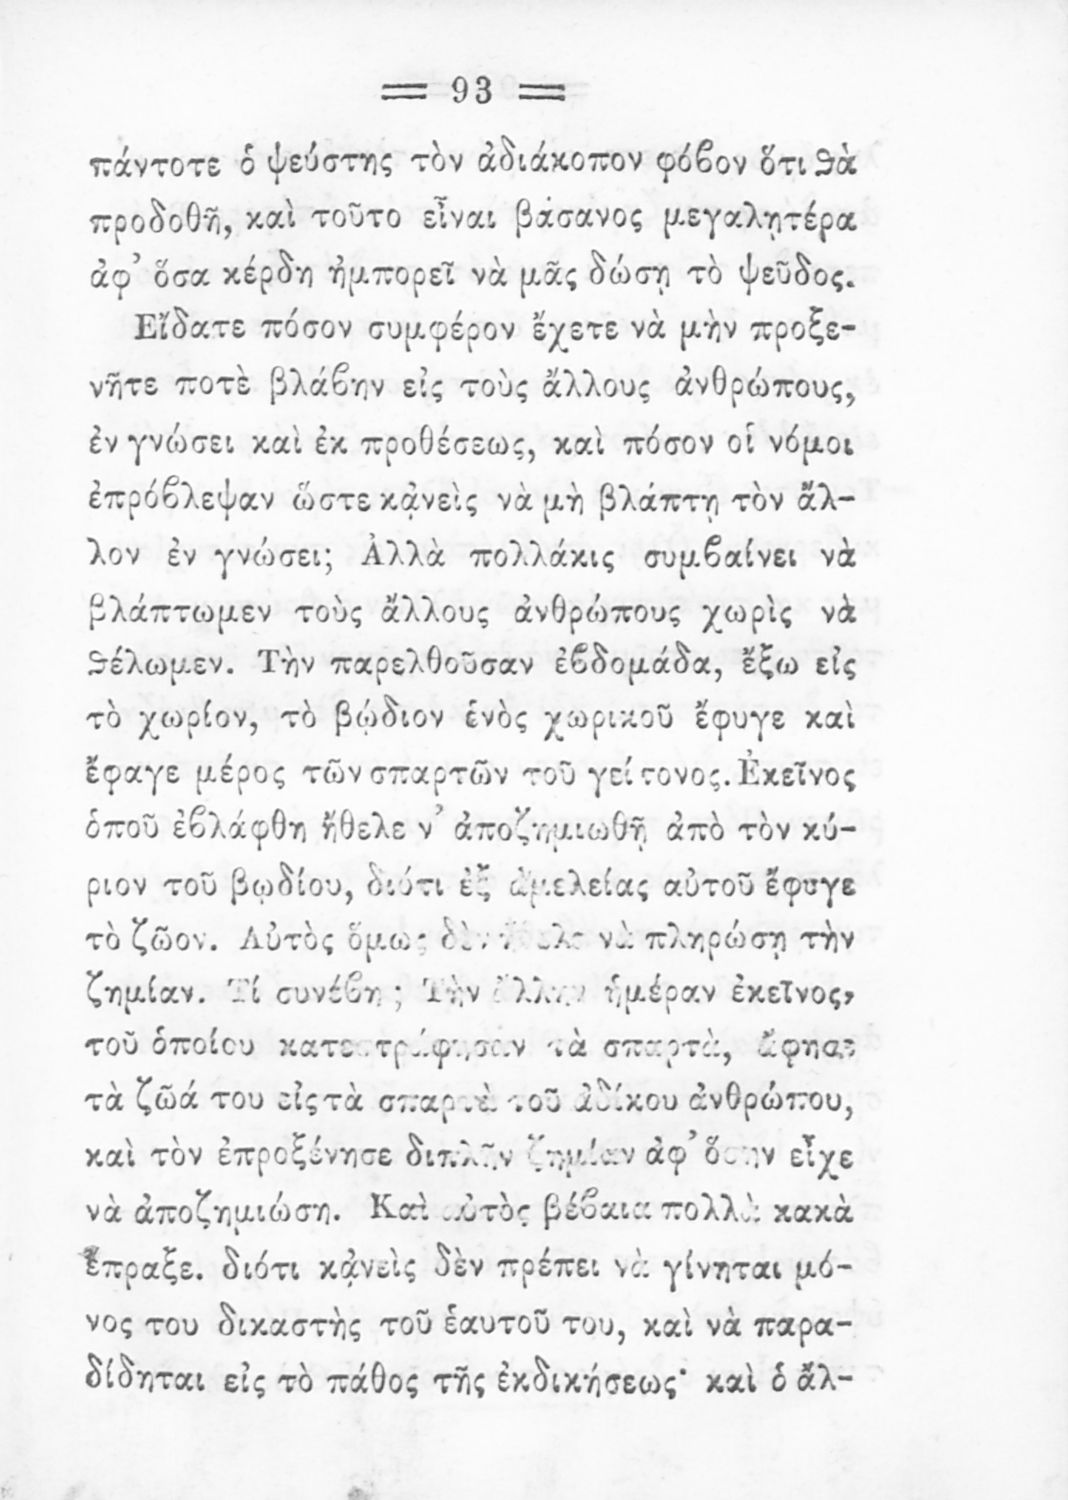 = 93 =
πάντοτε ὁ ψεύστης τὸν ἀδιάκοπον φόϐον ὅτι ϑὰ
προδοθῇ, καὶ τοῦτο εἶναι βάσανος μεγαλῃτέρα
ἀφ’ ὅσα κέρδη ἠμπορεῖ νὰ μᾶς δώσῃ τὸ ψεῦδος.
Εἴδατε πόσον συμφέρον ἔχετε νὰ μὴν προξε-
νῆτε ποτὲ βλάϐην εἰς τοὺς ἄλλους ἀνθρώπους,
ἐν γνώσει καὶ ἐκ προθέσεως, καὶ πόσον οἱ νόμοι
ἐπρόϐλεψαν ὥστε κᾀνεὶς νὰ μὴ βλάπτῃ τὸν ἄλ-
λον ἐν γνώσει; Ἀλλὰ πολλάκις συμϐαίνει νὰ
βλάπτωμεν τοὺς ἄλλους ἀνθρώπους χωρὶς νὰ
ϑέλωμεν. Τὴν παρελθοῦσαν ἑϐδομάδα, ἔξω εἰς
τὸ χωρίον, τὸ βῴδιον ἑνὸς χωρικοῦ ἔφυγε καὶ
ἔφαγε μέρος τῶν σπαρτῶν τοῦ γείτονος. Ἐκεῖνος
ὁποῦ ἐϐλάφθη ἤθελε ν’ ἀποζημιωθῇ ἀπὸ τὸν κύ-
ριον τοῦ βῳδίου, διότι ἐξ ἀμελείας αὐτοῦ ἔφυγε
τὸ ζῶον. Αὐτὸς ὅμως δὲν ἤθελε νὰ πληρώσῃ τὴν
ζημίαν. Τί συνέϐη; Τὴν ἄλλην ἡμέραν ἐκεῖνος,
τοῦ ὁποίου κατεστράφησαν τὰ σπαρτὰ, ἄφησε
τὰ ζῶά του εἰς τὰ σπαρτὰ τοῦ ἀδίκου ἀνθρώπου,
καὶ τὸν ἐπροξένησε διπλῆν ζημίαν ἀφ’ ὅσην εἶχε
νὰ ἀποζημιώσῃ. Καὶ αὐτὸς βέϐαια πολλὰ κακὰ
ἔπραξε. διότι κᾀνεὶς δὲν πρέπει νὰ γίνηται μό-
νος του δικαστὴς τοῦ ἑαυτοῦ του, καὶ νὰ παρα-
δίδηται εἰς τὸ πάθος τῆς ἐκδικήσεως· καὶ ὁ ἄλ-